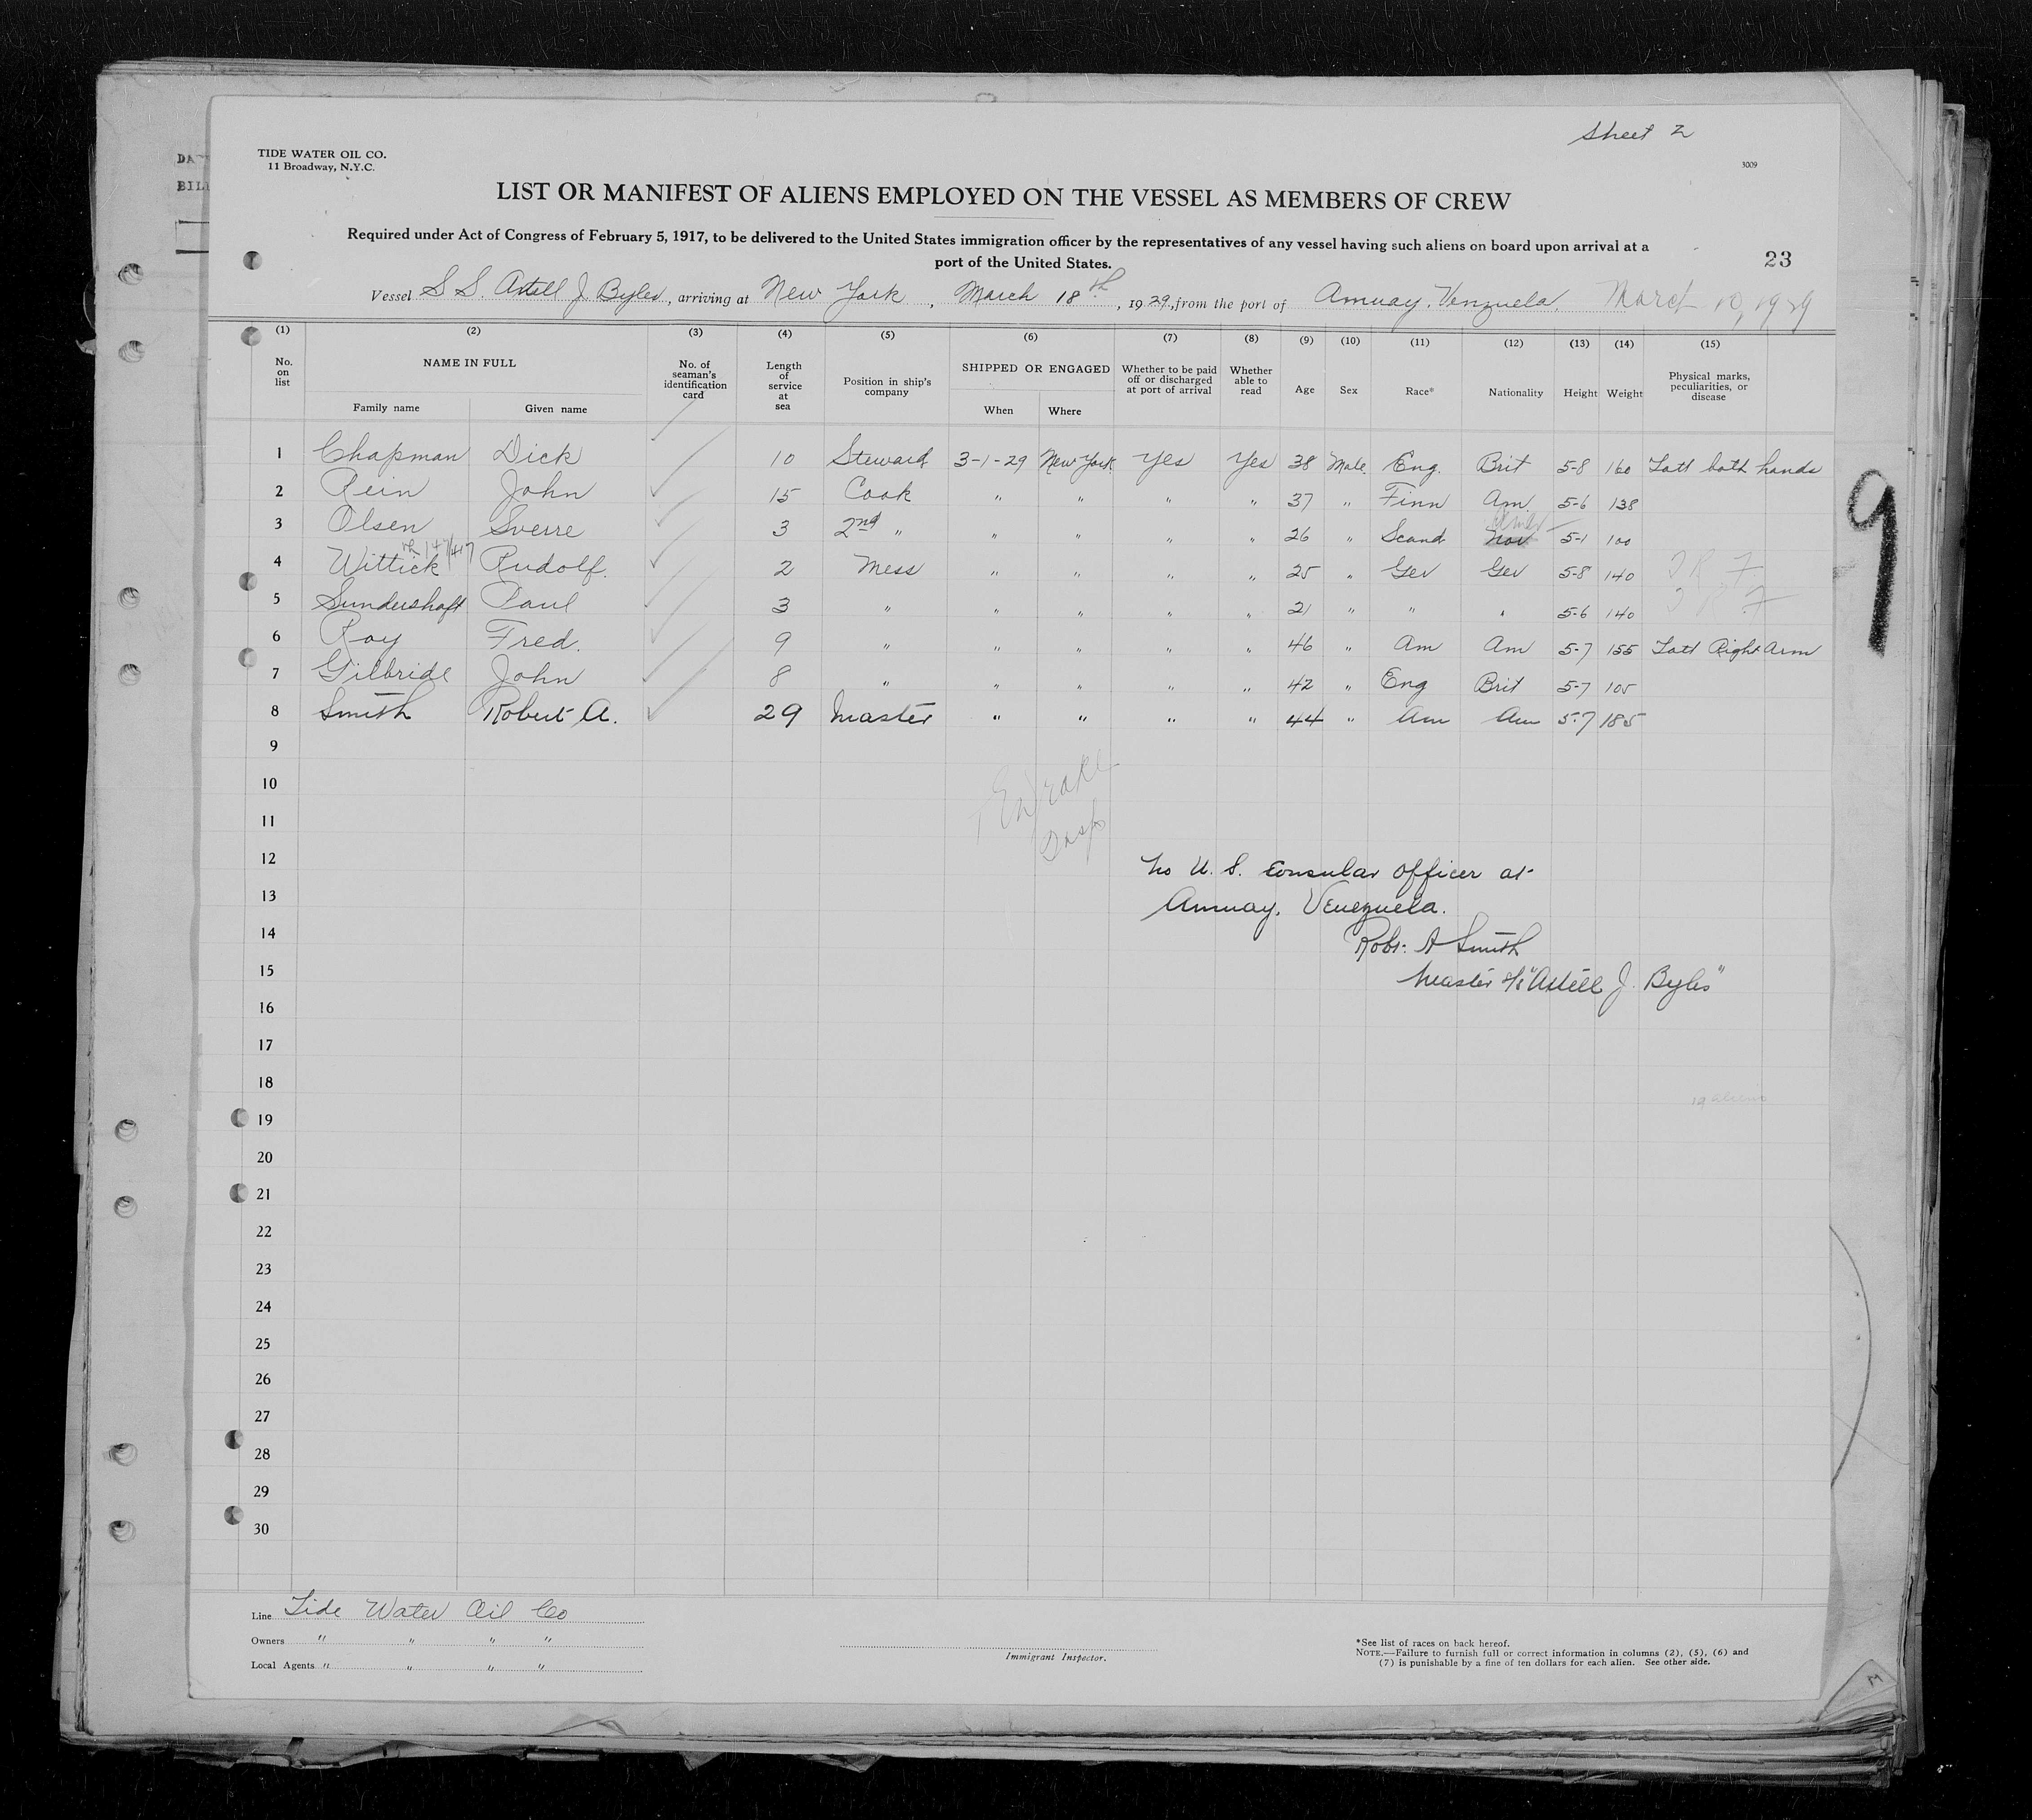 Sheet 2
TIDE WATER OIL CO.
11 Broadway, N.Y.C.
3009
LIST OR MANIFEST OF ALIENS EMPLOYED ON THE VESSEL AS MEMBERS OF CREW
Required under Act of Congress of February 5, 1917, to be delivered to the United States immigration officer by the representatives of any vessel having such aliens on board upon arrival at a
port of the United States.
23
Vessel S S. Axtell J. Byles, arriving at New York, March 18th, 1929, from the port of Amuay. Venzuela. March 10, 1929
(1) (2) (3) (4) (5) (6) (7) (8) (9) (10) (11) (12) (13) (14) (15)
No. on list NAME IN FULL No. of seaman's identification card Length of service at sea Position in ship's company SHIPPED OR ENGAGED Whether to be paid off or discharged at port of arrival Whether able to read Age Sex Race* Nationality Height Weight Physical marks, peculiarities, or disease
Family name Given name When Where
1 Chapman Dick 10 Steward 3-1-29 New York Yes Yes 38 Male Eng. Brit 5-8 160 Tatt both hands
2 Rein John 15 Cook " " " " 37 " Finn Am. 5-6 138
3 Olsen Sverre 3 2nd " " " " " 26 " Scand Nor 5-1 100
4 Wittick Rudolf. 2 Mess " " " " 25 " Ger Ger 5-8 140
5 Sundershaft Paul 3 " " " " " 21 " " " 5-6 140
6 Roy Fred. 9 " " " " " 46 " Am Am 5-7 155 Tatt Right Arm
7 Gilbride John 8 " " " " " 42 " Eng Brit 5-7 105
8 Smith Robert A. 29 Master " " " " 44 " Am Am 5-7 185
9
10
11
12
13
14
15
16
17
18
19
20
21
22
23
24
25
26
27
28
29
30
No U. S. Consular Officer at
Amuay, Venezuela.
Robt. A Smith
Master S/S "Axtell J. Byles"
19 aliens
9
Line Tide Water Oil Co
Owners " " " "
Local Agents " " " "
Immigrant Inspector.
*See list of races on back hereof.
NOTE.—Failure to furnish full or correct information in columns (2), (5), (6) and
(7) is punishable by a fine of ten dollars for each alien. See other side.